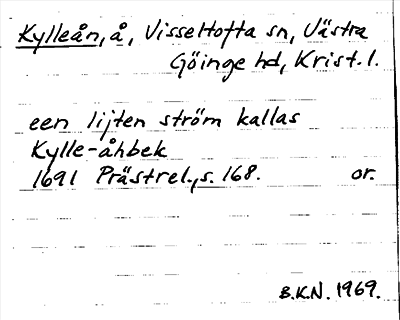 Kylleån, å, Visseltofta sn, Västra
Göinge hd, Krist. l.
een lijten ström kallas
Kylle-åhbek
1691 Prästrel., s. 168. or.
B.K.N. 1969.